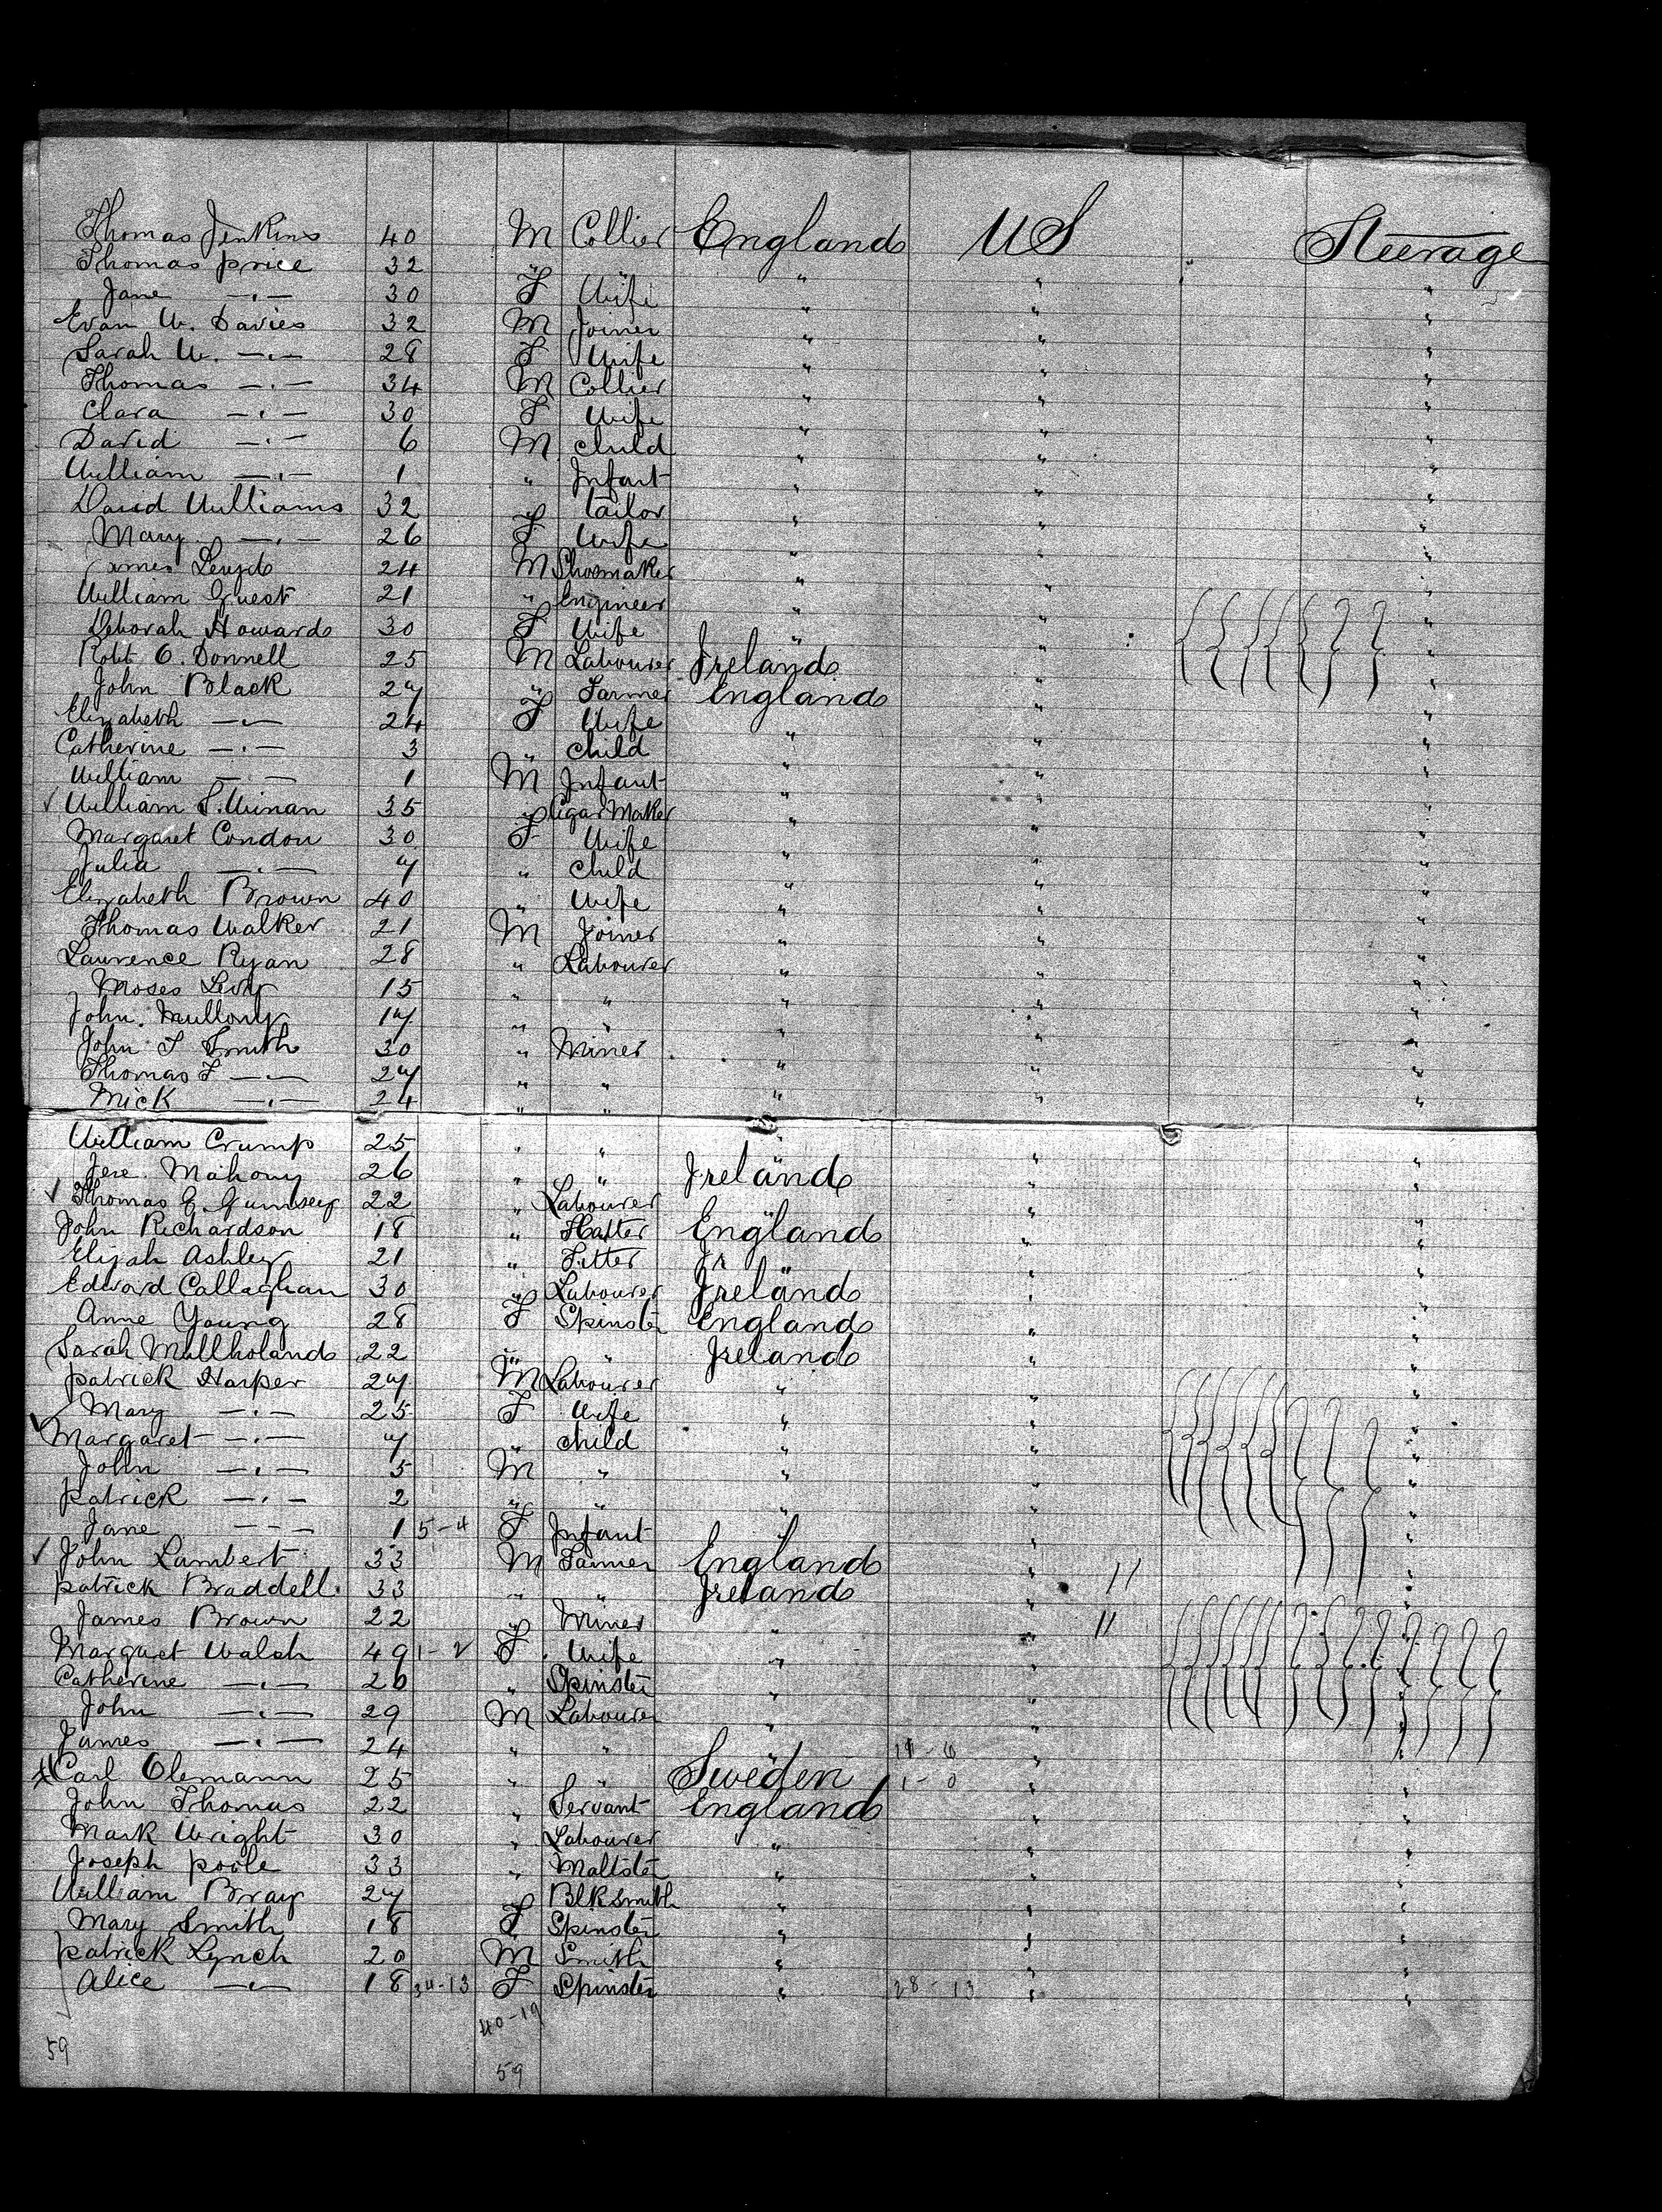 Thomas Jenkins 40 M Collier England US " Steerage
Thomas price 32 " " " " "
Jane —"— 30 F Wife " " "
Evan W. Davies 32 M Joiner " " "
Sarah W. —"— 28 F Wife " " "
Thomas —"— 34 M Collier " " "
Clara —"— 30 F Wife " " "
David —"— 6 M child " " "
William —"— 1 " Infant " " "
David Williams 32 " tailor " " "
Mary —"— 26 F Wife " " "
James 24 M Shoemaker " " "
William Guest 21 " Engineer " " "
Deborah Howard 30 F Wife " " "
Robt O. Donnell 25 M Labourer Ireland " "
John Black 27 " Farmer England " "
Elizabeth —"— 24 F Wife " " "
Catherine —"— 3 " child " " "
William —"— 1 M Infant " " "
William S. Winan 35 " Cigar Maker " " "
Margaret Condon 30 F Wife " " "
Julia —"— 7 " child " " "
Elizabeth Brown 40 " Wife " " "
Thomas Walker 21 M Joiner " " "
Laurence Ryan 28 " Labourer " " "
Moses Levy 15 " " " " "
John Mullony 17 " " " " "
John S Smith 30 " Miner " " "
Thomas F —"— 27 " " " " "
Mick —"— 24 " " " " "
William Crump 25 " " " " "
Jere. Mahony 26 " " Ireland " "
Thomas E Gumsey 22 " Labourer " " "
John Richardson 18 " Hatter England " "
Elijah Ashley 21 " Fitter Ir " " "
Edward Callaghan 30 " Labourer Ireland " "
Anne Young 28 F Spinster England " "
Sarah Mullholand 22 " " Ireland " "
patrick Harper 27 M Labourer " " "
Mary —"— 25 F Wife " " "
Margaret —"— 7 " child " " "
John —"— 5 M " " " "
patrick —"— 2 " " " " "
Jane —"— 1 5-4 F Infant " " "
John Lambert 33 M Farmer England " 11 "
patrick Braddell 33 " " Ireland " "
James Brown 22 " Miner " " 11 "
Margaret Walsh 49 1-2 F Wife " " "
Catherine —"— 20 " Spinster " " "
John —"— 29 M Labourer " " "
James —"— 24 " " " 11-6 " "
Carl Olemann 25 " " Sweden 1-0 " "
John Thomas 22 " Servant England " "
Mark Wright 30 " Labourer " " "
Joseph poole 33 " Maltster " " "
William Bray 27 " Blksmith " " "
Mary Smith 18 F Spinster " " "
patrick Lynch 20 M Smith " " "
Alice —"— 18 34-13 F Spinster " 28-13 " "
40-19
59 59